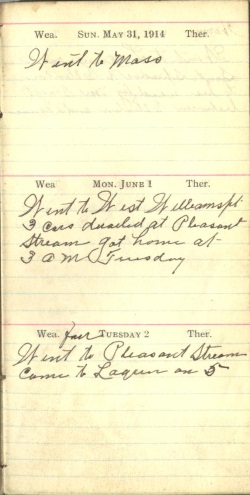 Wea. SUN. MAY 31, 1914 Ther.
Went to Mass
Wea MON. JUNE 1 Ther.
Went to West Williamspt
3 cars derailed at Pleasant
Stream got home at
3 am Tuesday
Wea. Fair TUESDAY 2 Ther.
Went to Pleasant Stream
came to Laquin on 5